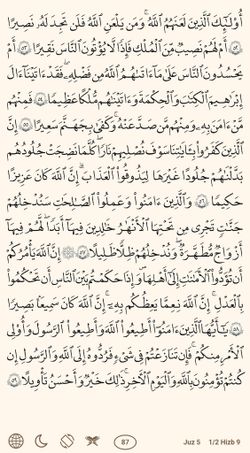 أُو۟لَٰٓئِكَ ٱلَّذِينَ لَعَنَهُمُ ٱللَّهُ ۖ وَمَن يَلْعَنِ ٱللَّهُ فَلَن تَجِدَ لَهُۥ نَصِيرًا
٥٢ أَمْ لَهُمْ نَصِيبٌ مِّنَ ٱلْمُلْكِ فَإِذًا لَّا يُؤْتُونَ ٱلنَّاسَ نَقِيرًا ٥٣ أَمْ
يَحْسُدُونَ ٱلنَّاسَ عَلَىٰ مَآ ءَاتَىٰهُمُ ٱللَّهُ مِن فَضْلِهِۦ ۖ فَقَدْ ءَاتَيْنَآ ءَالَ
إِبْرَٰهِيمَ ٱلْكِتَٰبَ وَٱلْحِكْمَةَ وَءَاتَيْنَٰهُم مُّلْكًا عَظِيمًا ٥٤ فَمِنْهُم
مَّنْ ءَامَنَ بِهِۦ وَمِنْهُم مَّن صَدَّ عَنْهُ ۚ وَكَفَىٰ بِجَهَنَّمَ سَعِيرًا ٥٥ إِنَّ
ٱلَّذِينَ كَفَرُوا۟ بِـَٔايَٰتِنَا سَوْفَ نُصْلِيهِمْ نَارًا كُلَّمَا نَضِجَتْ جُلُودُهُم
بَدَّلْنَٰهُمْ جُلُودًا غَيْرَهَا لِيَذُوقُوا۟ ٱلْعَذَابَ ۗ إِنَّ ٱللَّهَ كَانَ عَزِيزًا
حَكِيمًا ٥٦ وَٱلَّذِينَ ءَامَنُوا۟ وَعَمِلُوا۟ ٱلصَّٰلِحَٰتِ سَنُدْخِلُهُمْ
جَنَّٰتٍ تَجْرِى مِن تَحْتِهَا ٱلْأَنْهَٰرُ خَٰلِدِينَ فِيهَآ أَبَدًا ۖ لَّهُمْ فِيهَآ
أَزْوَٰجٌ مُّطَهَّرَةٌ ۖ وَنُدْخِلُهُمْ ظِلًّا ظَلِيلًا ٥٧ ۞ إِنَّ ٱللَّهَ يَأْمُرُكُمْ
أَن تُؤَدُّوا۟ ٱلْأَمَٰنَٰتِ إِلَىٰٓ أَهْلِهَا وَإِذَا حَكَمْتُم بَيْنَ ٱلنَّاسِ أَن تَحْكُمُوا۟
بِٱلْعَدْلِ ۚ إِنَّ ٱللَّهَ نِعِمَّا يَعِظُكُم بِهِۦٓ ۗ إِنَّ ٱللَّهَ كَانَ سَمِيعًۢا بَصِيرًا
٥٨ يَٰٓأَيُّهَا ٱلَّذِينَ ءَامَنُوٓا۟ أَطِيعُوا۟ ٱللَّهَ وَأَطِيعُوا۟ ٱلرَّسُولَ وَأُو۟لِى
ٱلْأَمْرِ مِنكُمْ ۖ فَإِن تَنَٰزَعْتُمْ فِى شَىْءٍ فَرُدُّوهُ إِلَى ٱللَّهِ وَٱلرَّسُولِ إِن
كُنتُمْ تُؤْمِنُونَ بِٱللَّهِ وَٱلْيَوْمِ ٱلْءَاخِرِ ۚ ذَٰلِكَ خَيْرٌ وَأَحْسَنُ تَأْوِيلًا ٥٩
87 Juz 5 1/2 Hizb 9